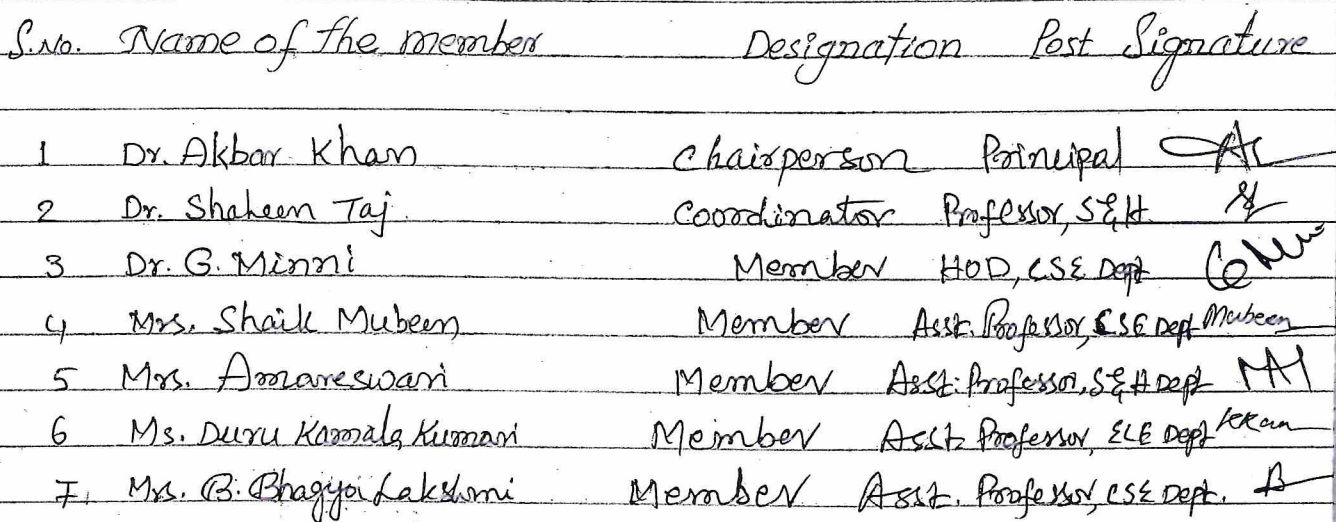 S.No. Name of the member Designation Post Signature
1 Dr. Akbar Khan Chairperson Principal
2 Dr. Shaheen Taj Coordinator Professor, S&H
3 Dr. G. Minni Member HOD, CSE Dept
4 Mrs. Shaik Mubeen Member Asst. Professor, CSE Dept Mubeen
5 Mrs. Amareswari Member Asst. Professor, S&H Dept
6 Ms. Duru Kamala Kumari Member Asst. Professor, ECE Dept
7. Mrs. B. Bhagya Lakshmi Member Asst. Professor, CSE Dept.